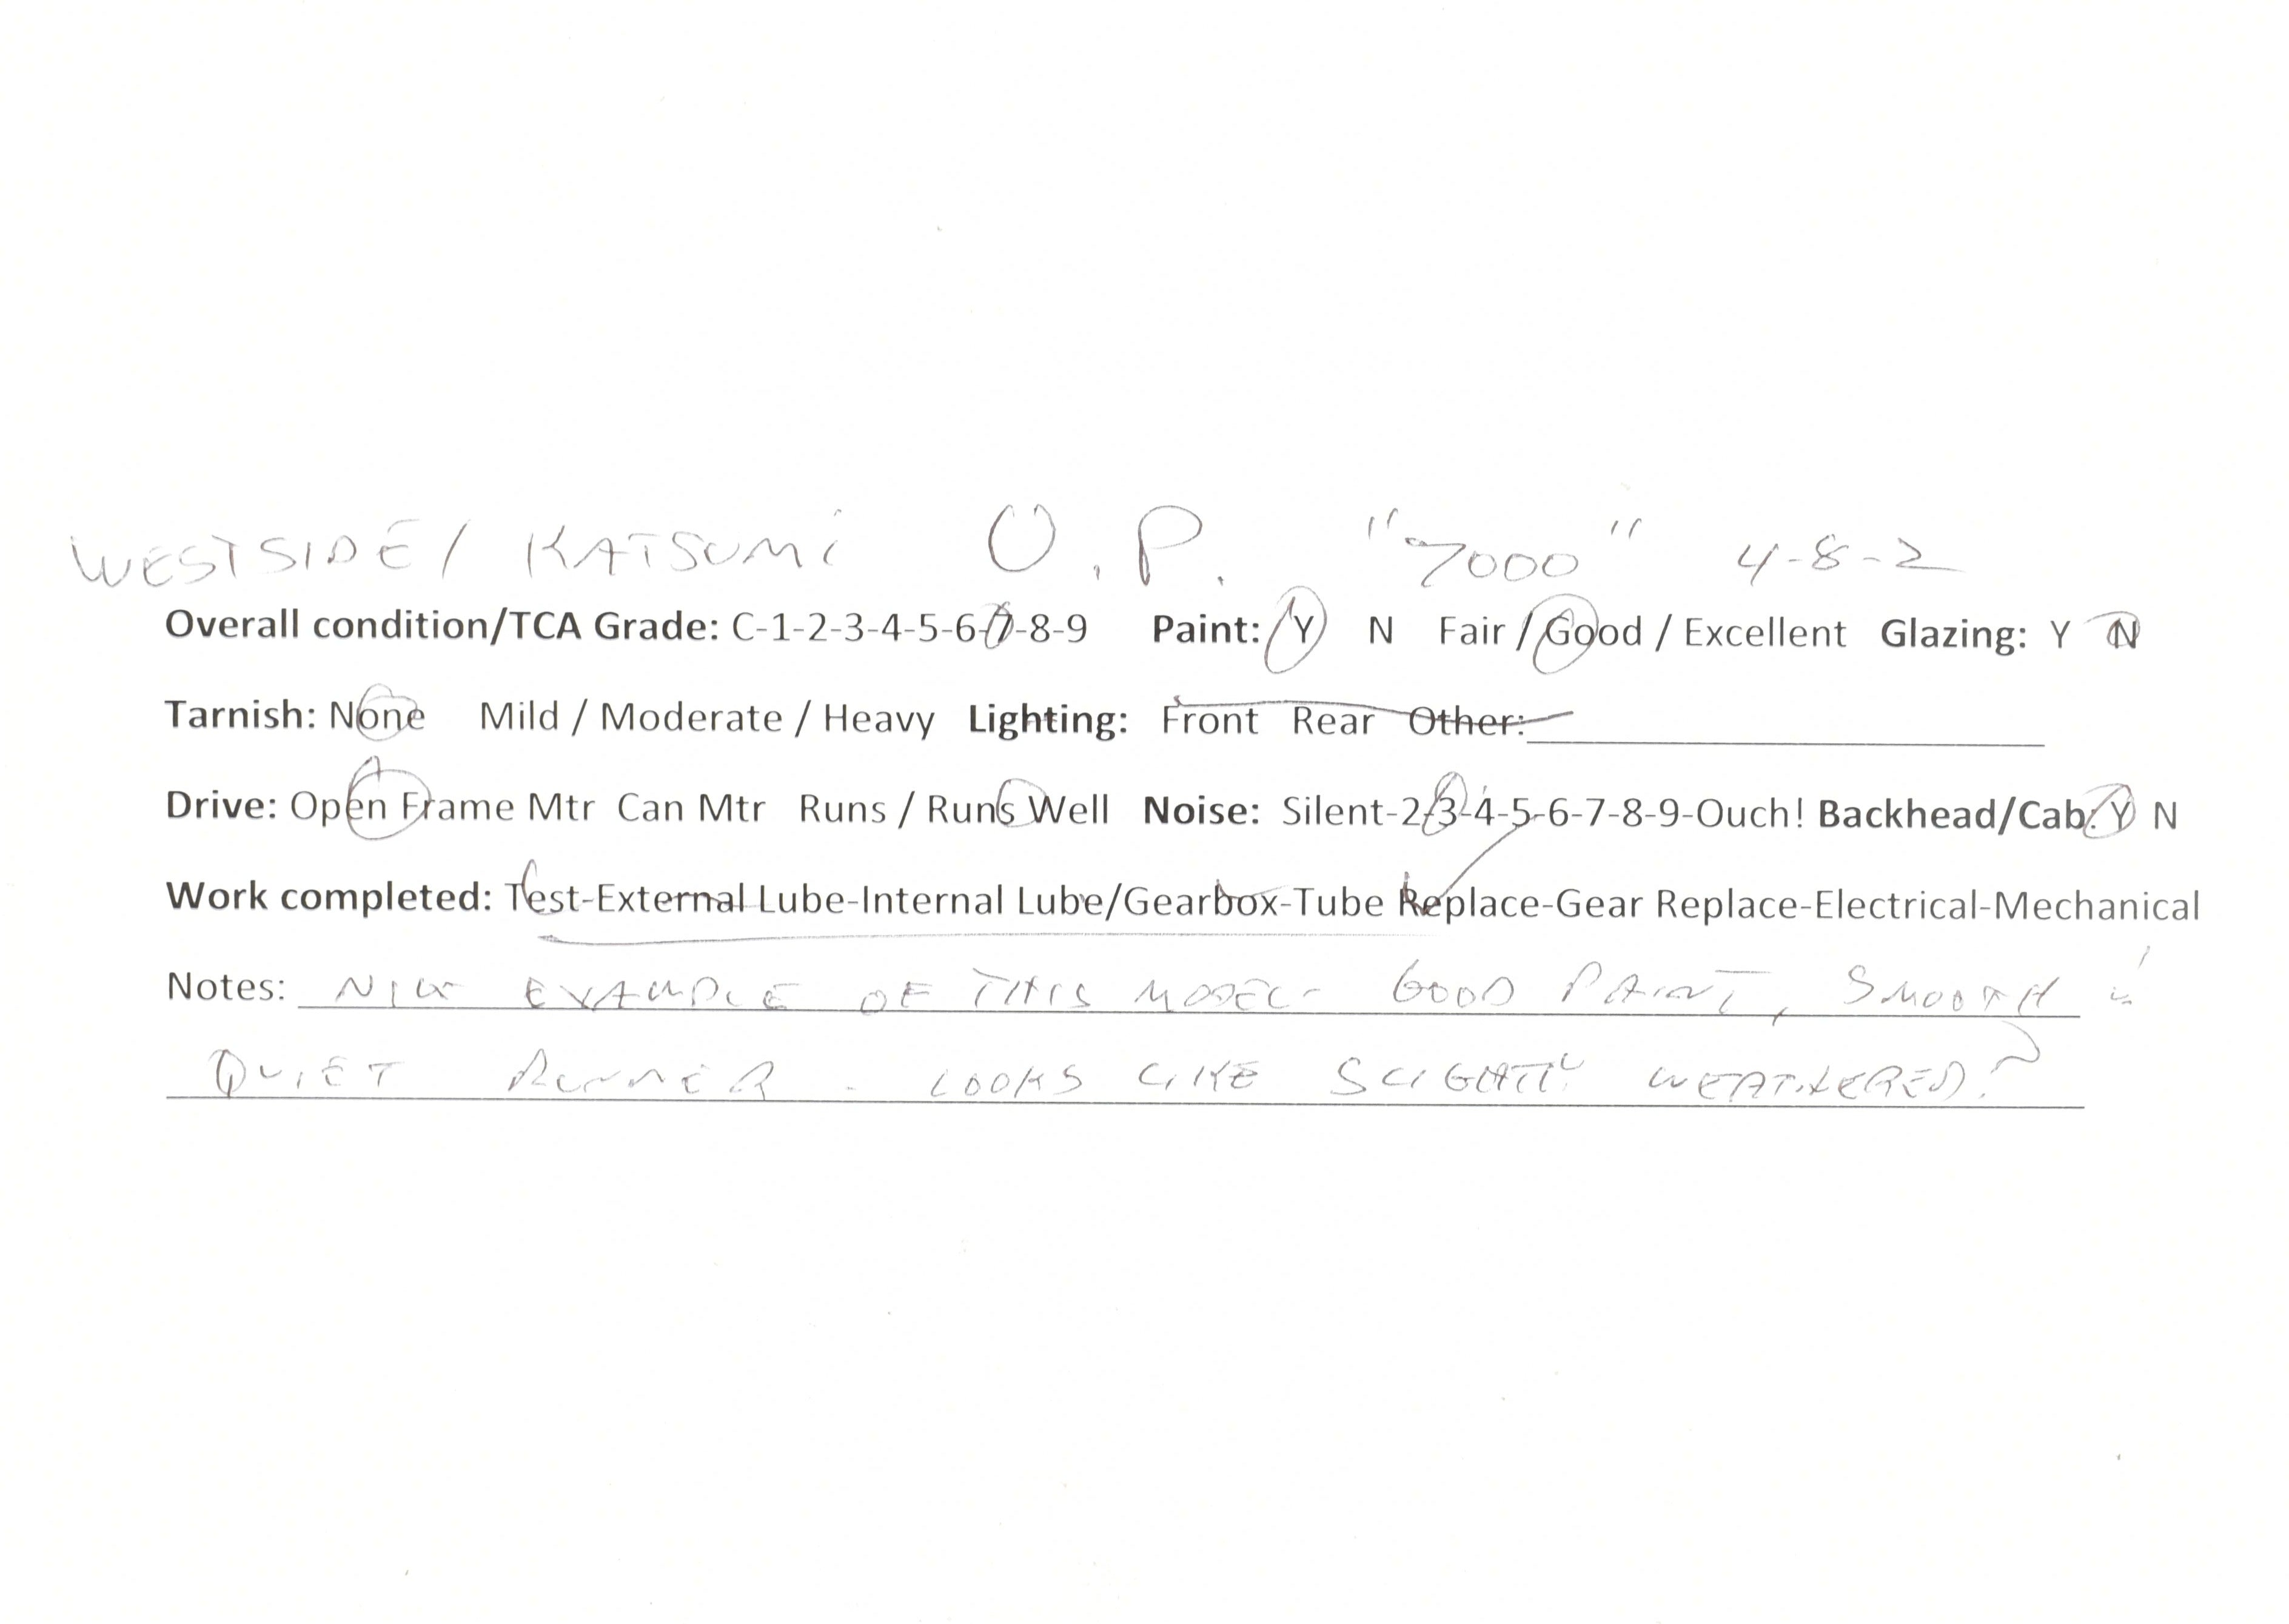 WESTSIDE/ KATSUMi U.P. "7000" 4-8-2
Overall condition/TCA Grade: C-1-2-3-4-5-6-7-8-9 Paint: Y N Fair / Good / Excellent Glazing: Y N
Tarnish: None Mild / Moderate / Heavy Lighting: Front Rear Other:
Drive: Open Frame Mtr Can Mtr Runs / Runs Well Noise: Silent-2-3-4-5-6-7-8-9-Ouch! Backhead/Cab: Y N
Work completed: Test-External Lube-Internal Lube/Gearbox-Tube Replace-Gear Replace-Electrical-Mechanical
Notes: NICE EXAMPLE OF THIS MODEL- GOOD PAINT, SMOOTH
QUIET RUNNER - LOOKS LIKE SLIGHTLY WEATHERED?